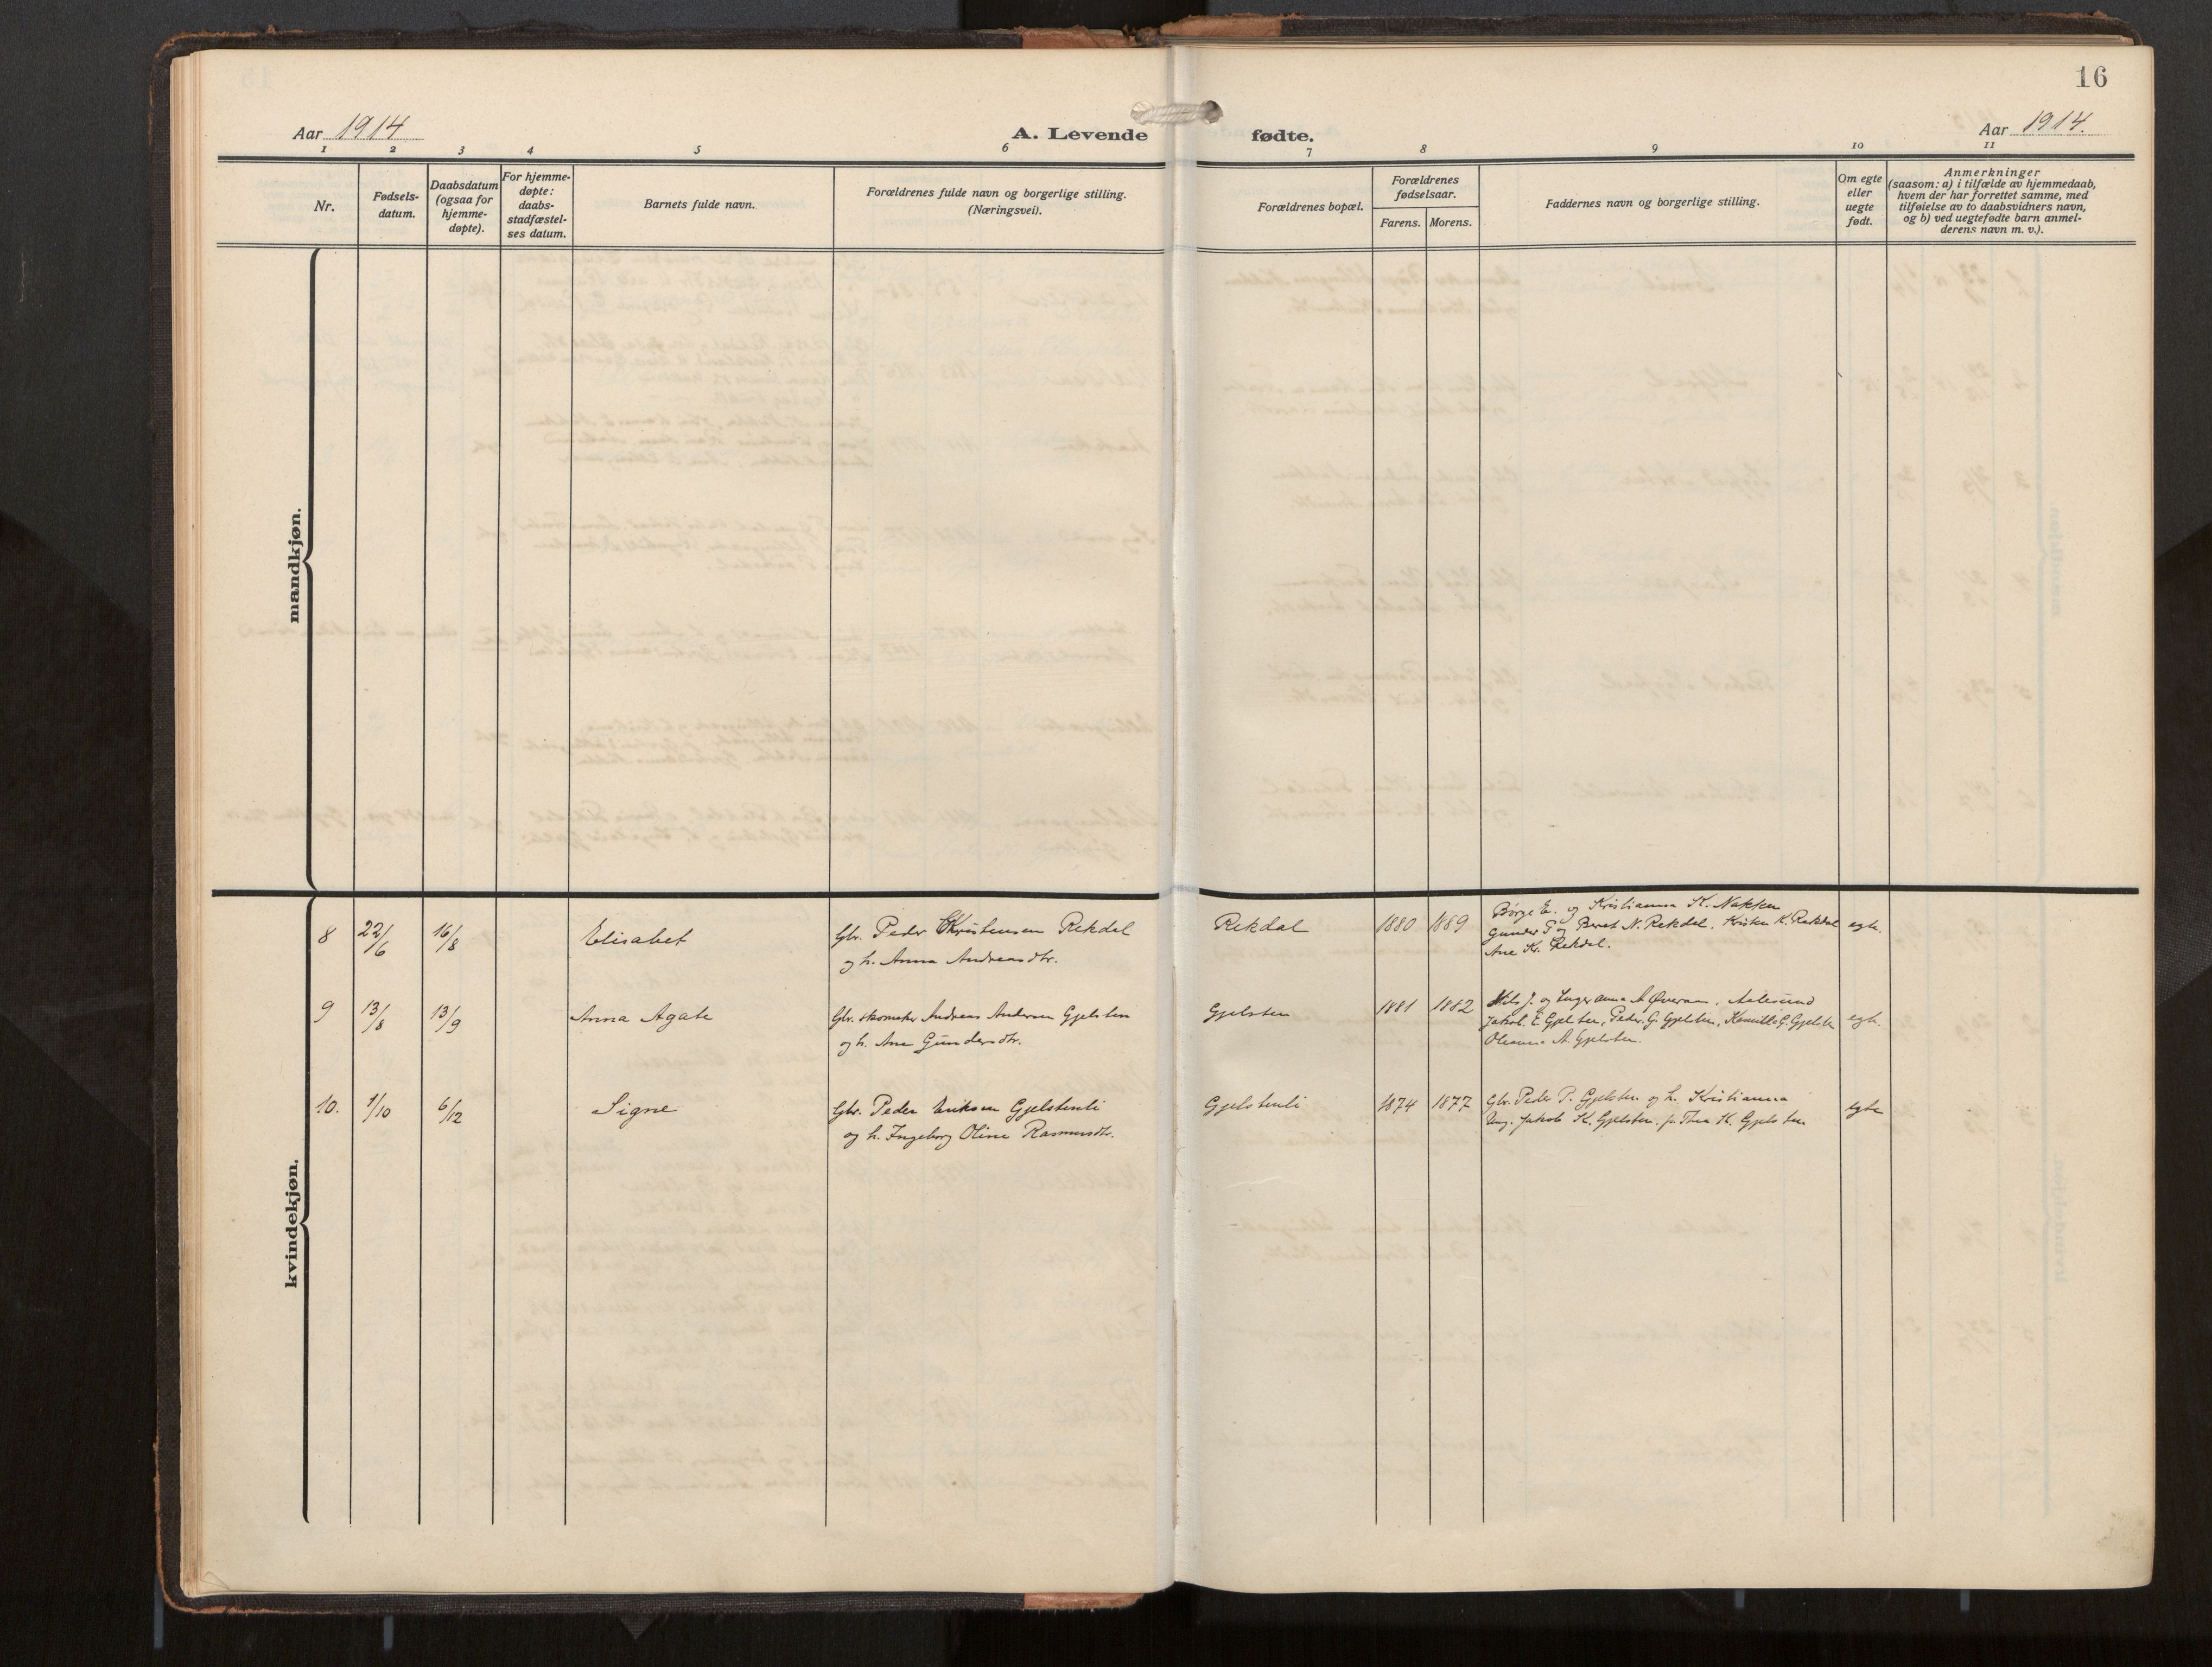 16
Aar 1914
A. Levende fødte.
Aar 1914.
1 2 3 4 5 6 7 8 9 10 11
Nr.
Fødsels-
datum.
Daabsdatum
(ogsaa for
hjemme-
døpte).
For hjemme-
døpte:
daabs-
stadfæstel-
ses datum.
Barnets fulde navn.
Forældrenes fulde navn og borgerlige stilling.
(Næringsvei).
Forældrenes bopæl.
Forældrenes
fødselsaar.
Farens. Morens.
Faddernes navn og borgerlige stilling.
Om egte
eller
uegte
født.
Anmerkninger
(saasom: a) i tilfælde av hjemmedaab,
hvem der har forrettet samme, med
tilføielse av to daabsvidners navn,
og b) ved uegtefødte barn anmel-
derens navn m. v.).
mandkjøn.
kvindekjøn.
8 22/6 16/8 Elisabet
Gbr. Peder Kristensen Rekdal
og h. Anna Andreasdtr.
Rekdal 1880 1889
Børge E. og Kristianna K. Nakken
Gunder P og Beret N. Rekdal. Kristen K. Rekdal
Ane K. Rekdal.
egte.
9 13/8 13/9 Anna Agate
Gbr. skomaker Andreas Andersen Gjelsten
og h. Ane Gundersdtr.
Gjelsten 1881 1882
Nils J. og Inger Anna A. Øveraas, Aalesund
Jakob. E. Gjelsten, Peder. G. Gjelsten, Kamilla G. Gjelsten
Oleanna A. Gjelsten.
egte.
10. 1/10 6/12 Signe
Gbr. Peder Eriksen Gjelstenli
og h. Ingeborg Oline Rasmusdtr.
Gjelstenli 1874 1877
Gbr. Peder P. Gjelsten og h. Kristianna
Ung. Jakob K. Gjelsten. p. Thea K. Gjelsten
egte